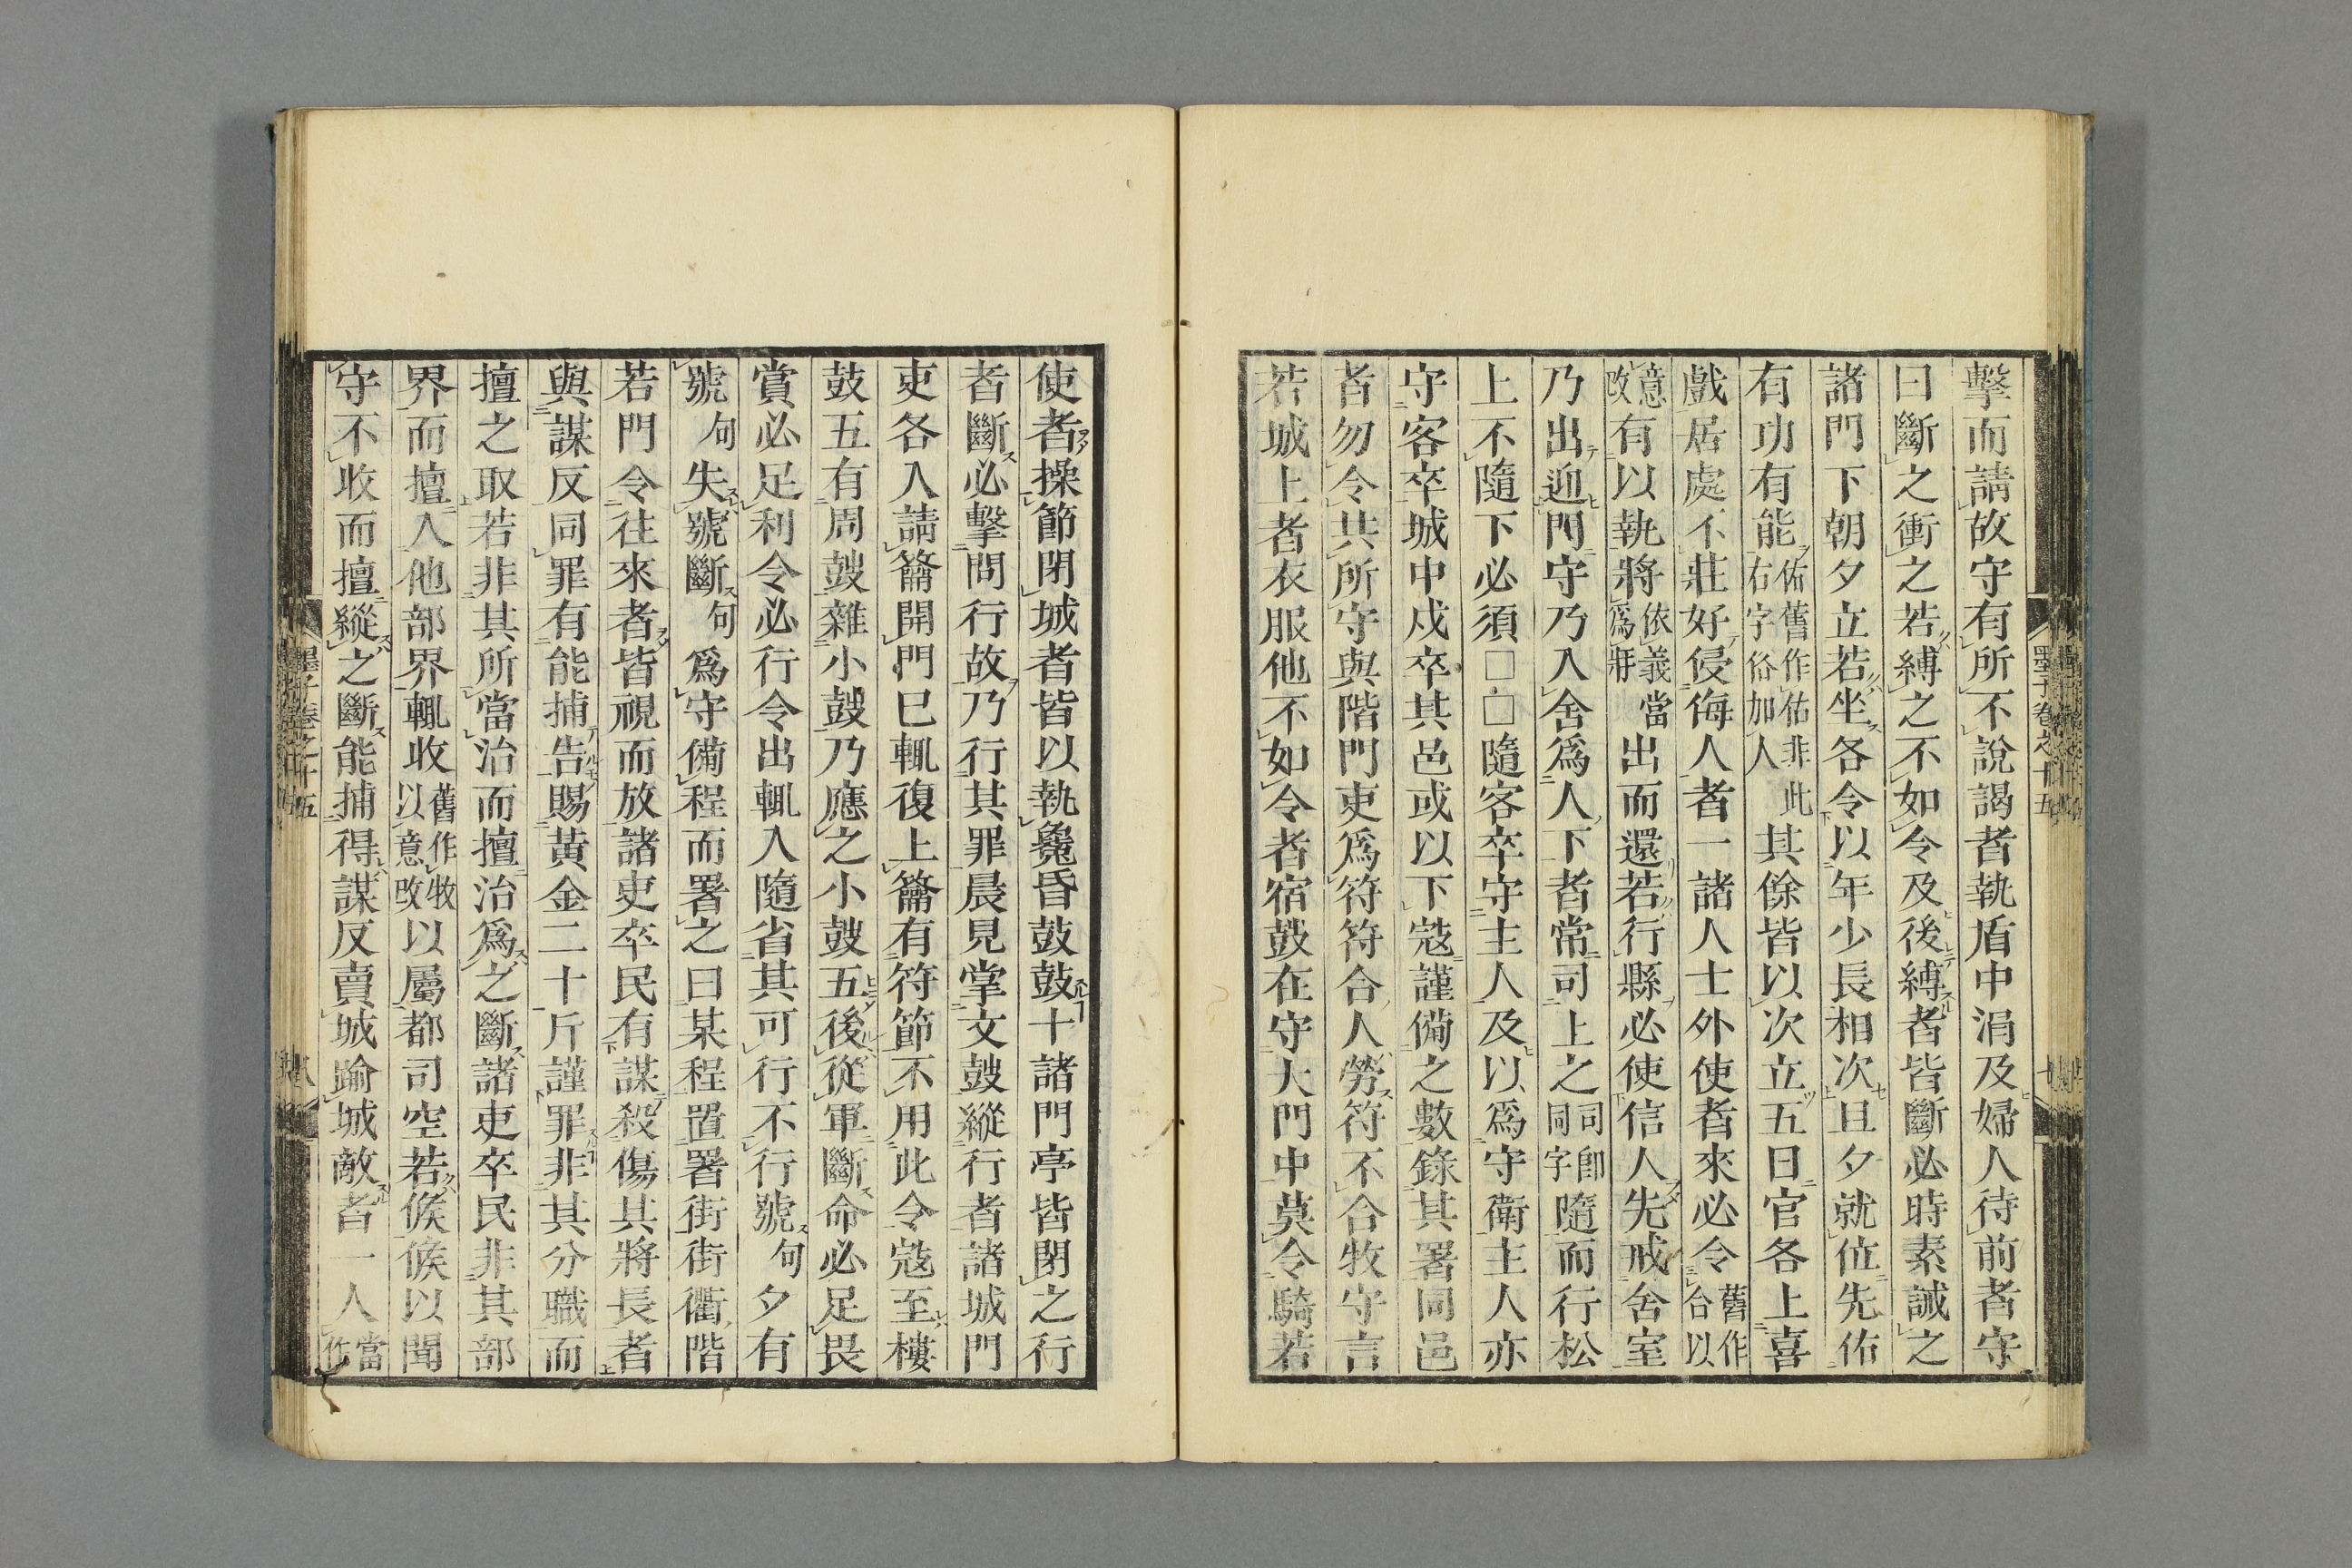 擊而請故守有所不說謁者執盾中涓及婦人待前者守
曰斷之衝之若縛之不如令及後縛者皆斷必時素誡之
諸門下朝夕立若坐各令以年少長相次旦夕就位先佑
有功有能佑舊作佑非此右字俗加人其餘皆以次立五日官各上喜
戲居處不莊好侵侮人者一諸人士外使者來必令舊作合以
意改有以執將依義當爲牂出而還若行縣必使信人先戒舍室
乃出迎門守乃入舍爲人下者常司上之司卽同字隨而行松
上不隨下必須□□隨客卒守主人及以爲守衛主人亦
守客卒城中戍卒其邑或以下寇謹備之數錄其署同邑
者勿令共所守與階門吏爲符符合人勞符不合牧守言
若城上者衣服他不如令者宿鼓在守大門中莫令騎若
墨子卷之十五
使者操節閉城者皆以執毚昏鼓鼓十諸門亭皆閉之行
者斷必擊問行故乃行其罪晨見掌文鼓縱行者諸城門
吏各入請籥開門已輒復上籥有符節不用此令寇至樓
鼓五有周鼓雜小鼓乃應之小鼓五後從軍斷命必足畏
賞必足利令必行令出輒入隨省其可行不行號句夕有
號句失號斷句爲守備程而署之曰某程置署街街衢階
若門令往來者皆視而放諸吏卒民有謀殺傷其將長者
與謀反同罪有能捕告賜黃金二十斤謹罪非其分職而
擅之取若非其所當治而擅治爲之斷諸吏卒民非其部
界而擅入他部界輒收舊作牧以意改以屬都司空若候候以聞
守不收而擅縱之斷能捕得謀反賣城踰城敵者一人當作
墨子卷之十五